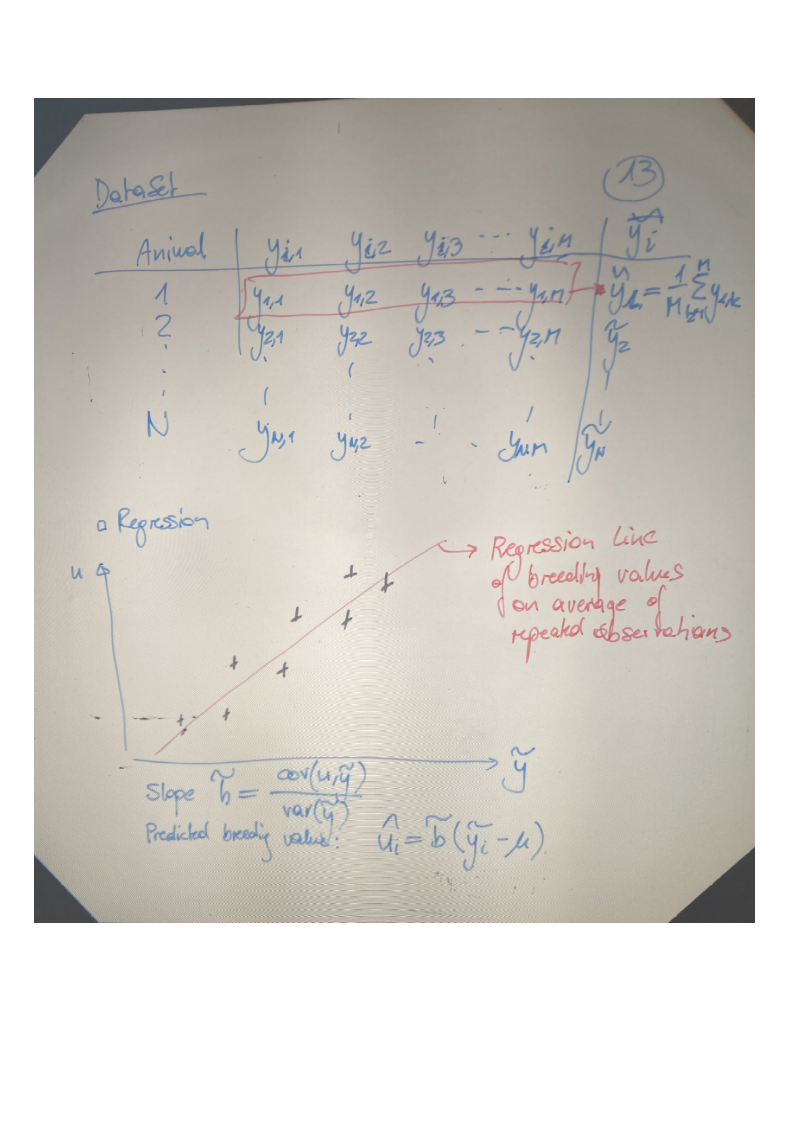 13
Dataset
Animal y_{i,1} y_{i,2} y_{i,3} ... y_{i,M} ỹ_i
1 y_{1,1} y_{1,2} y_{1,3} - - - y_{1,M} ỹ_1 = 1/M Σ_{k=1}^{M} y_{1,k}
2 y_{2,1} y_{2,2} y_{2,3} - - y_{2,M} ỹ_2
N y_{N,1} y_{N,2} - . y_{N,M} ỹ_N
□ Regression
u
Regression Line
of breeding values
on average of
repeated observations
ỹ
Slope b̃ = cov(u,ỹ) / var(ỹ)
Predicted breeding value: û_i = b̃(ỹ_i - μ)